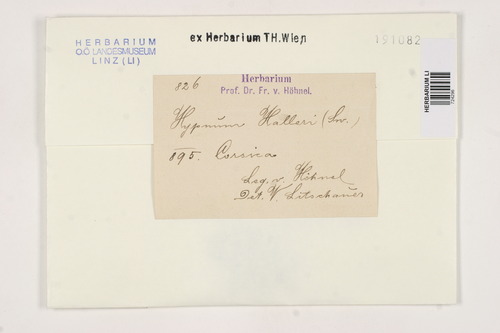 HERBARIUM
O.Ö. LANDESMUSEUM
LINZ (LI)
ex Herbarium TH.Wien
191082
HERBARIUM LI
826
Herbarium
Prof. Dr. Fr. v. Höhnel.
Hypnum Halleri (Sw.)
895. Corsica
Leg. v. Höhnel
Det. V. Litschauer